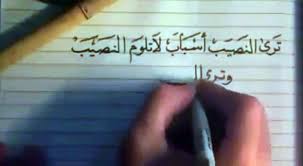 تَرىَ النَصِيبَ أسْبَابَ لاَتلُومَ النَصِيْبَ
وترىَ ال